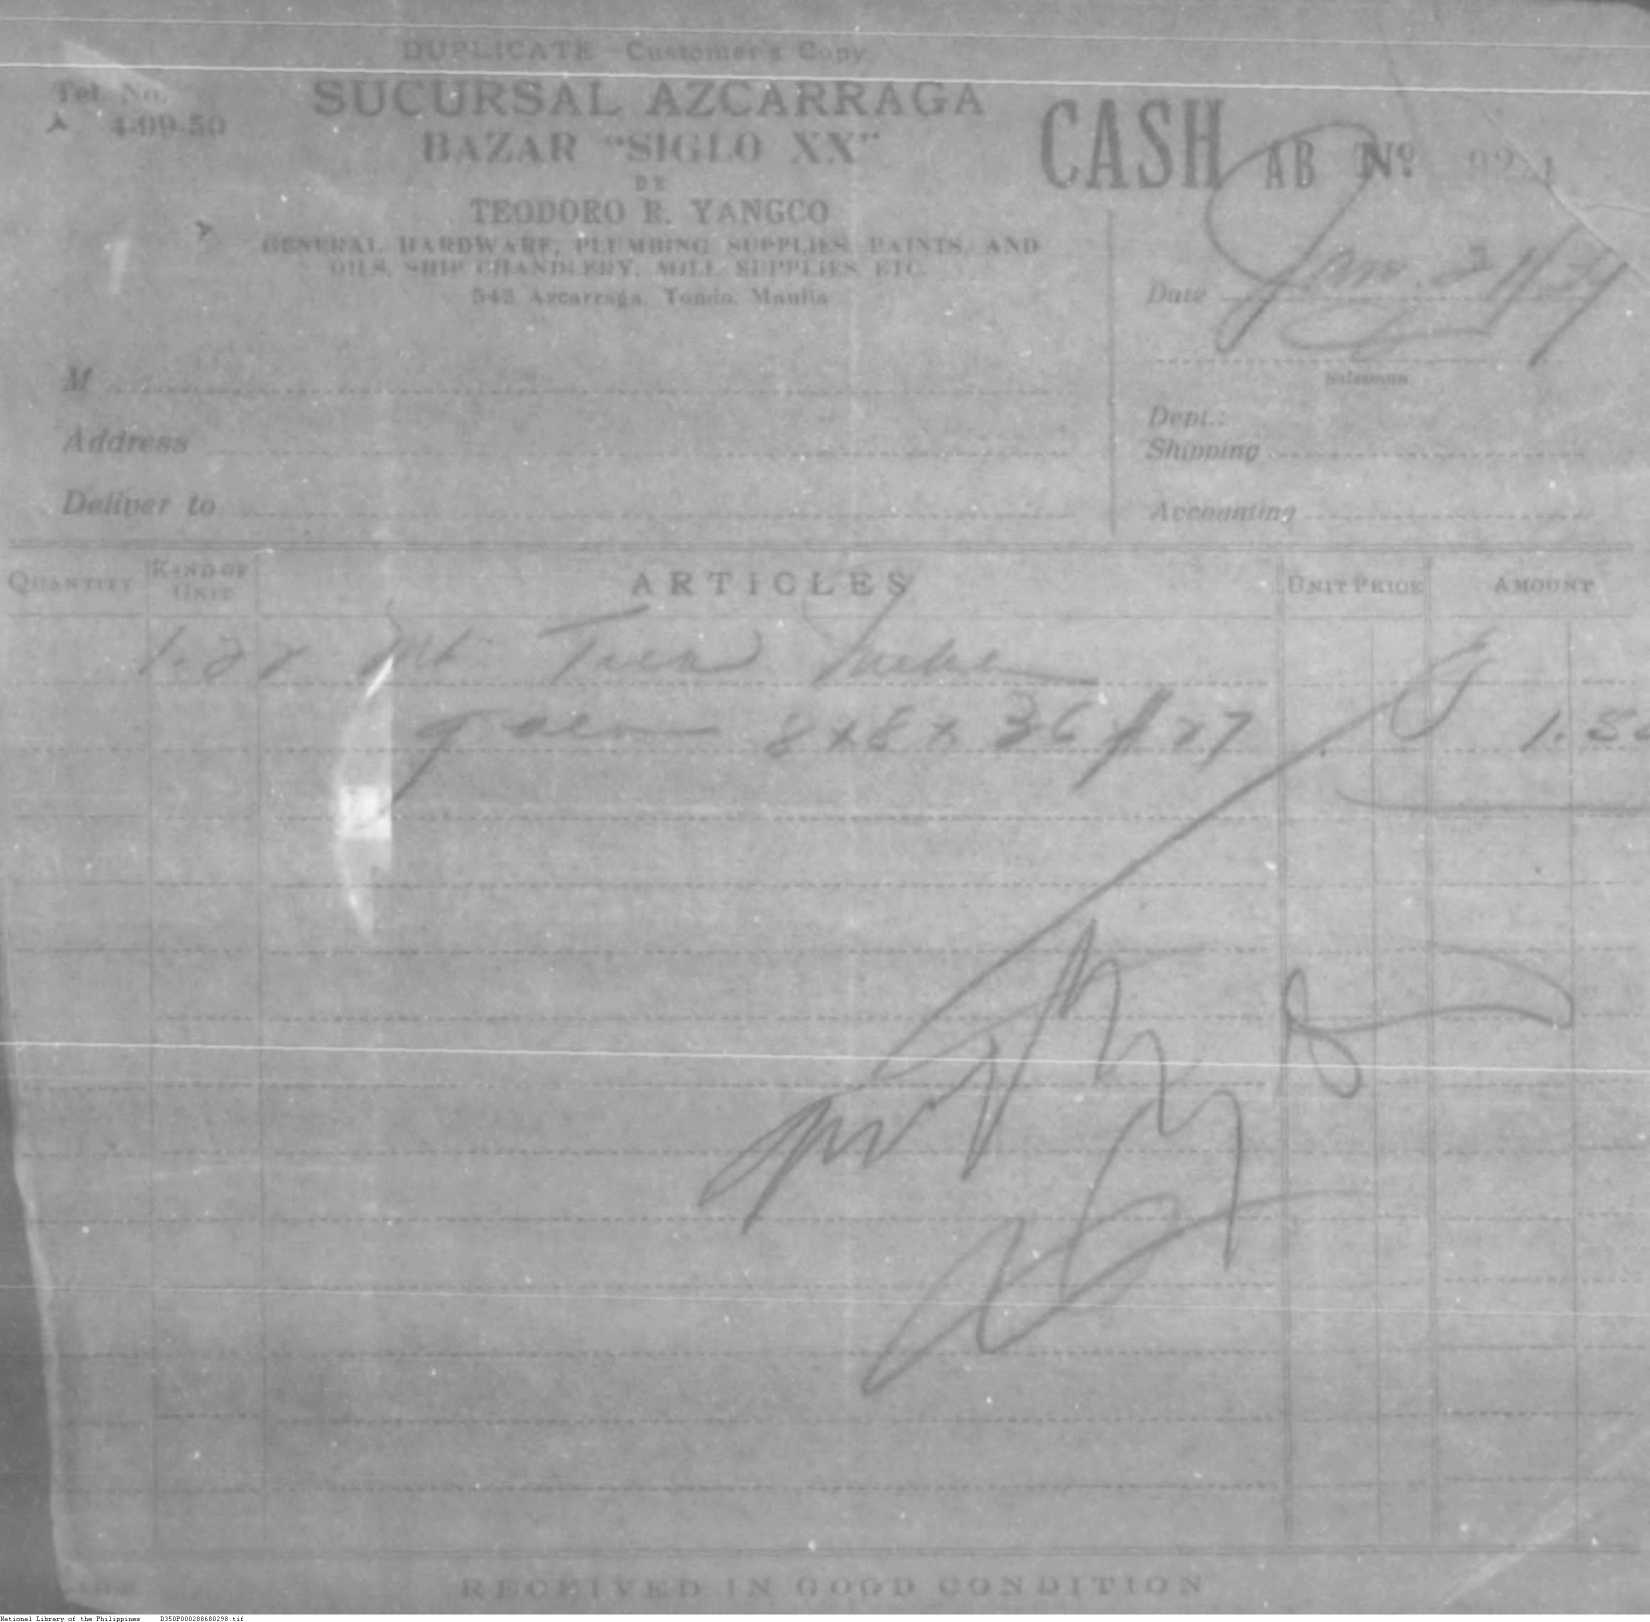 DUPLICATE Customer's Copy
Tel. No.
4-99-50
SUCURSAL AZCARRAGA
BAZAR "SIGLO XX"
DE
TEODORO R. YANGCO
GENERAL HARDWARE, PLUMBING SUPPLIES, PAINTS, AND
OILS, SHIP CHANDLERY, MILL SUPPLIES, ETC.
545 Azcarraga, Tondo, Manila
CASH AB Nº
Date Jan.
Salesman
M
Address
Deliver to
Dept.:
Shipping
Accounting
QUANTITY KIND OF UNIT ARTICLES UNIT PRICE AMOUNT
1.22 Mt
8 x 8 x 36 27
RECEIVED IN GOOD CONDITION
National Library of the Philippines D350P000288680298.tif